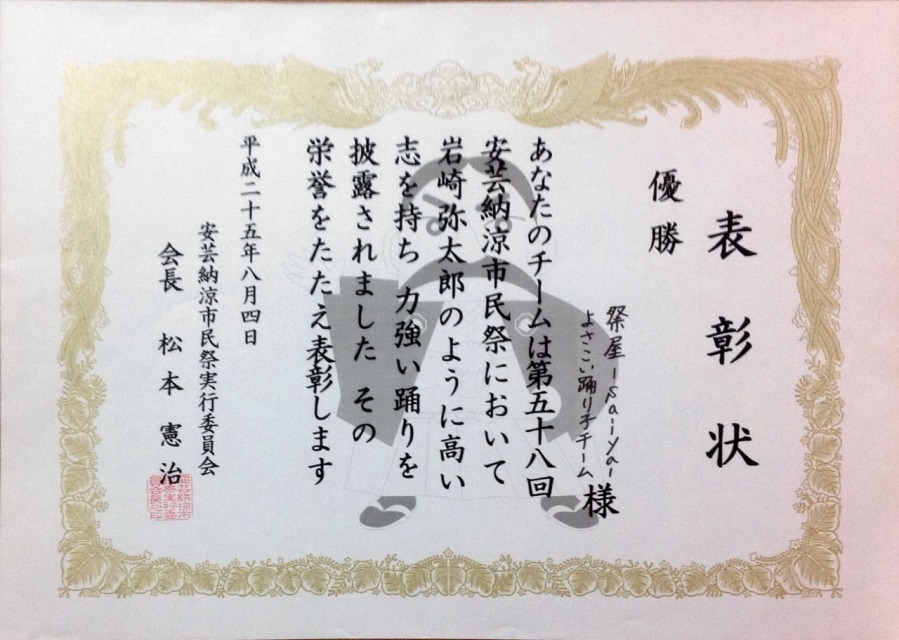 表彰状
優勝
祭屋-saiya-
よさこい踊り子チーム 様
あなたのチームは第五十八回
安芸納涼市民祭において
岩崎弥太郎のように高い
志を持ち 力強い踊りを
披露されました その
栄誉をたたえ表彰します
平成二十五年八月四日
安芸納涼市民祭実行委員会
会長 松本憲治